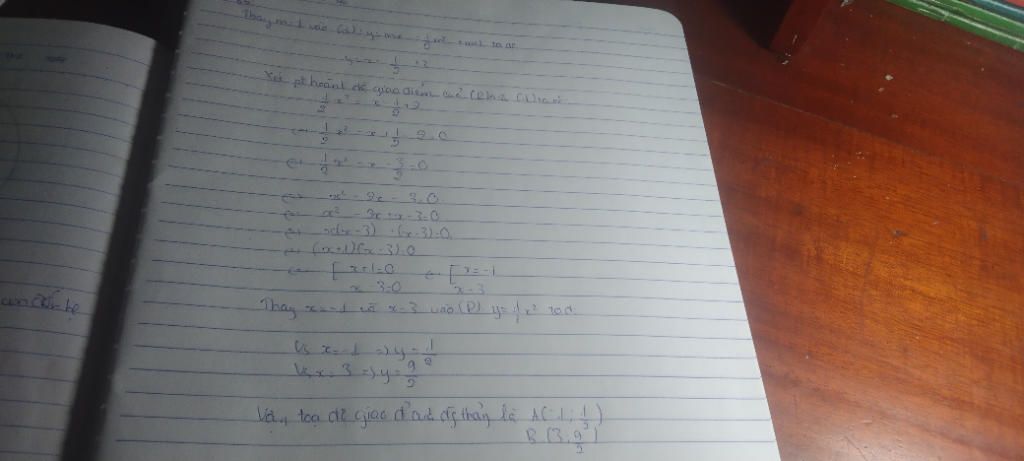 Thay m=1 vào (d): y=mx - \frac{1}{2}m² + m+1 ta đc
y=x - \frac{1}{2} +2
Xét pt hoành độ giao điểm của (P) và (d) ta có:
\frac{1}{2}x² = x - \frac{1}{2} +2
⇔ \frac{1}{2}x² - x + \frac{1}{2} - 2=0
⇔ \frac{1}{2}x² - x - \frac{3}{2}=0
⇔ x² - 2x - 3=0
⇔ x² - 3x + x - 3=0
⇔ x(x-3) + (x-3)=0
⇔ (x+1)(x-3)=0
⇔ [ x+1=0 ⇔ [ x=-1
x-3=0 x=3
Thay x=-1 và x=3 vào (P) y=\frac{1}{2}x² ta đc
Vs x=-1 => y=\frac{1}{2}
Vs x=3 => y=\frac{9}{2}
Vậy toạ độ giao điểm là A(-1; \frac{1}{2})
B(3; \frac{9}{2})